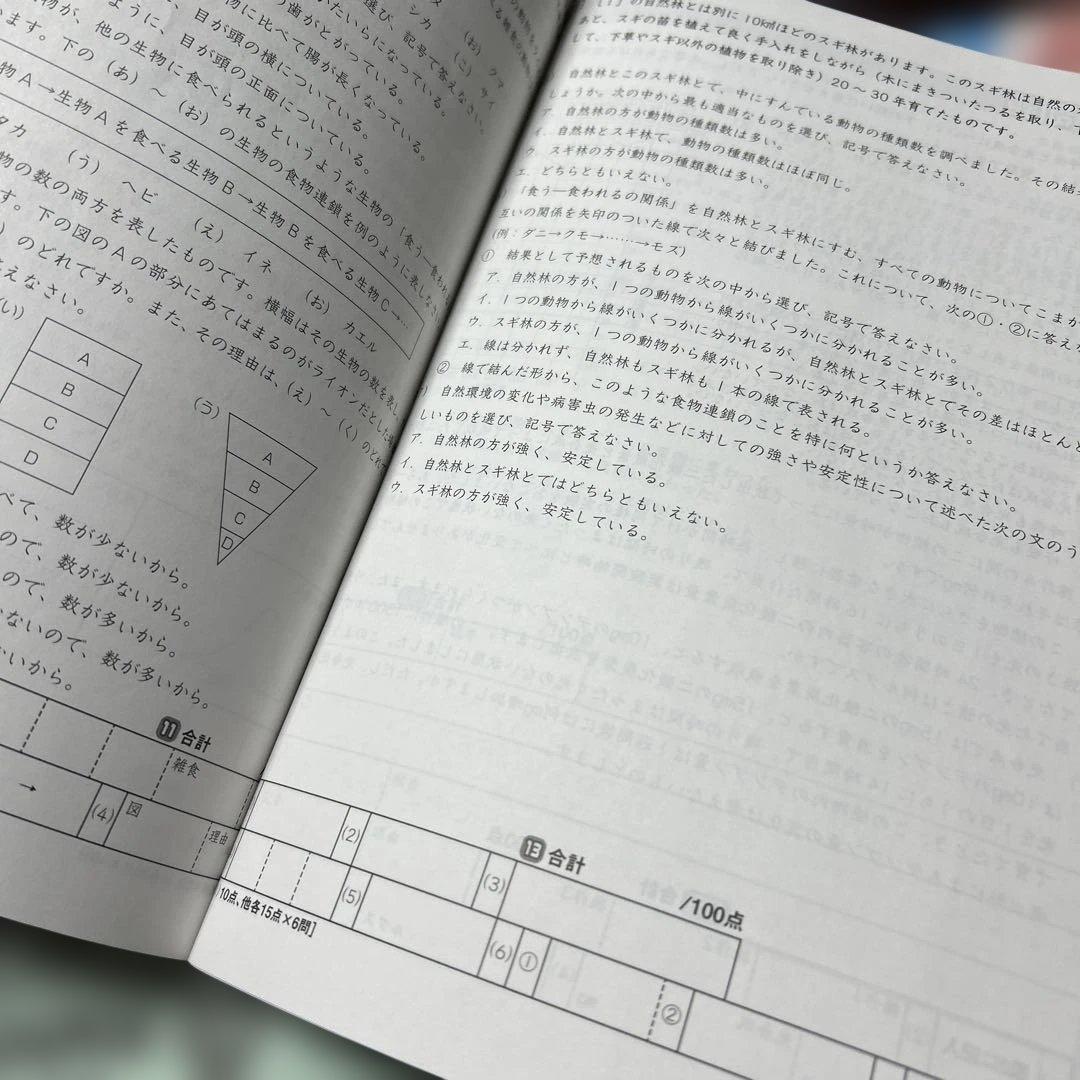 シカ
(お) クマ
(こ) サイ
選び、記号で答えなさい。
たいらになっている。
歯がとがっている。
物に比べて腸が長くなっている。
目が頭の横についている。
ように、目が頭の正面についている。
物が、他の生物に食べられるというような生物の「食う—食われ
ます。下の(あ)〜(お)の生物の食物連鎖を例のように表しなさ
物A→生物Aを食べる生物B→生物Bを食べる生物C→…
タカ
(う) ヘビ (え) イネ (お) カエル
物の数の両方を表したものです。横幅はその生物の数を表し
す。下の図のAの部分にあてはまるのがライオンだとした
のどれですか。また、その理由は、(え)〜(く)のどれで
答えなさい。
(い)
A
B
C
D
(う)
A
B
C
D
べて、数が少ないから。
ので、数が少ないから。
ので、数が多いから。
ないので、数が多いから。
ないから。
11 合計
雑食
→
(4) 図
理由
の自然林とは別に10km²ほどのスギ林があります。このスギ林は自然の
あと、スギの苗を植えて良く手入れをしながら(木にまきついたつるを取り、下
して、下草やスギ以外の植物を取り除き)20〜30年育てたものです。
自然林とこのスギ林とで、中にすんでいる動物の種類数を調べました。その結
しょうか。次の中から最も適当なものを選び、記号で答えなさい。
ア．自然林の方が動物の種類数は多い。
イ．自然林とスギ林で、動物の種類数はほぼ同じ。
ウ．スギ林の方が動物の種類数は多い。
エ．どちらともいえない。
「食う—食われるの関係」を自然林とスギ林にすむ、すべての動物についてこまか
互いの関係を矢印のついた線で次々と結びました。これについて、次の①・②に答えな
(例：ダニ→クモ→……→モズ)
① 結果として予想されるものを次の中から選び、記号で答えなさい。
ア．自然林の方が、1つの動物から線がいくつかに分かれることが多い。
イ．1つの動物から線がいくつかに分かれるが、自然林とスギ林とでその差はほとんど
ウ．スギ林の方が、1つの動物から線がいくつかに分かれることが多い。
エ．線は分かれず、自然林もスギ林も1本の線で表される。
② 線で結んだ形から、このような食物連鎖のことを特に何というか答えなさい。
自然環境の変化や病害虫の発生などに対しての強さや安定性について述べた次の文のう
しいものを選び、記号で答えなさい。
ア．自然林の方が強く、安定している。
イ．自然林とスギ林とではどちらともいえない。
ウ．スギ林の方が強く、安定している。
13 合計
/100点
(2)
(3)
(5)
(6) ①
②
10点、他各15点×6問]